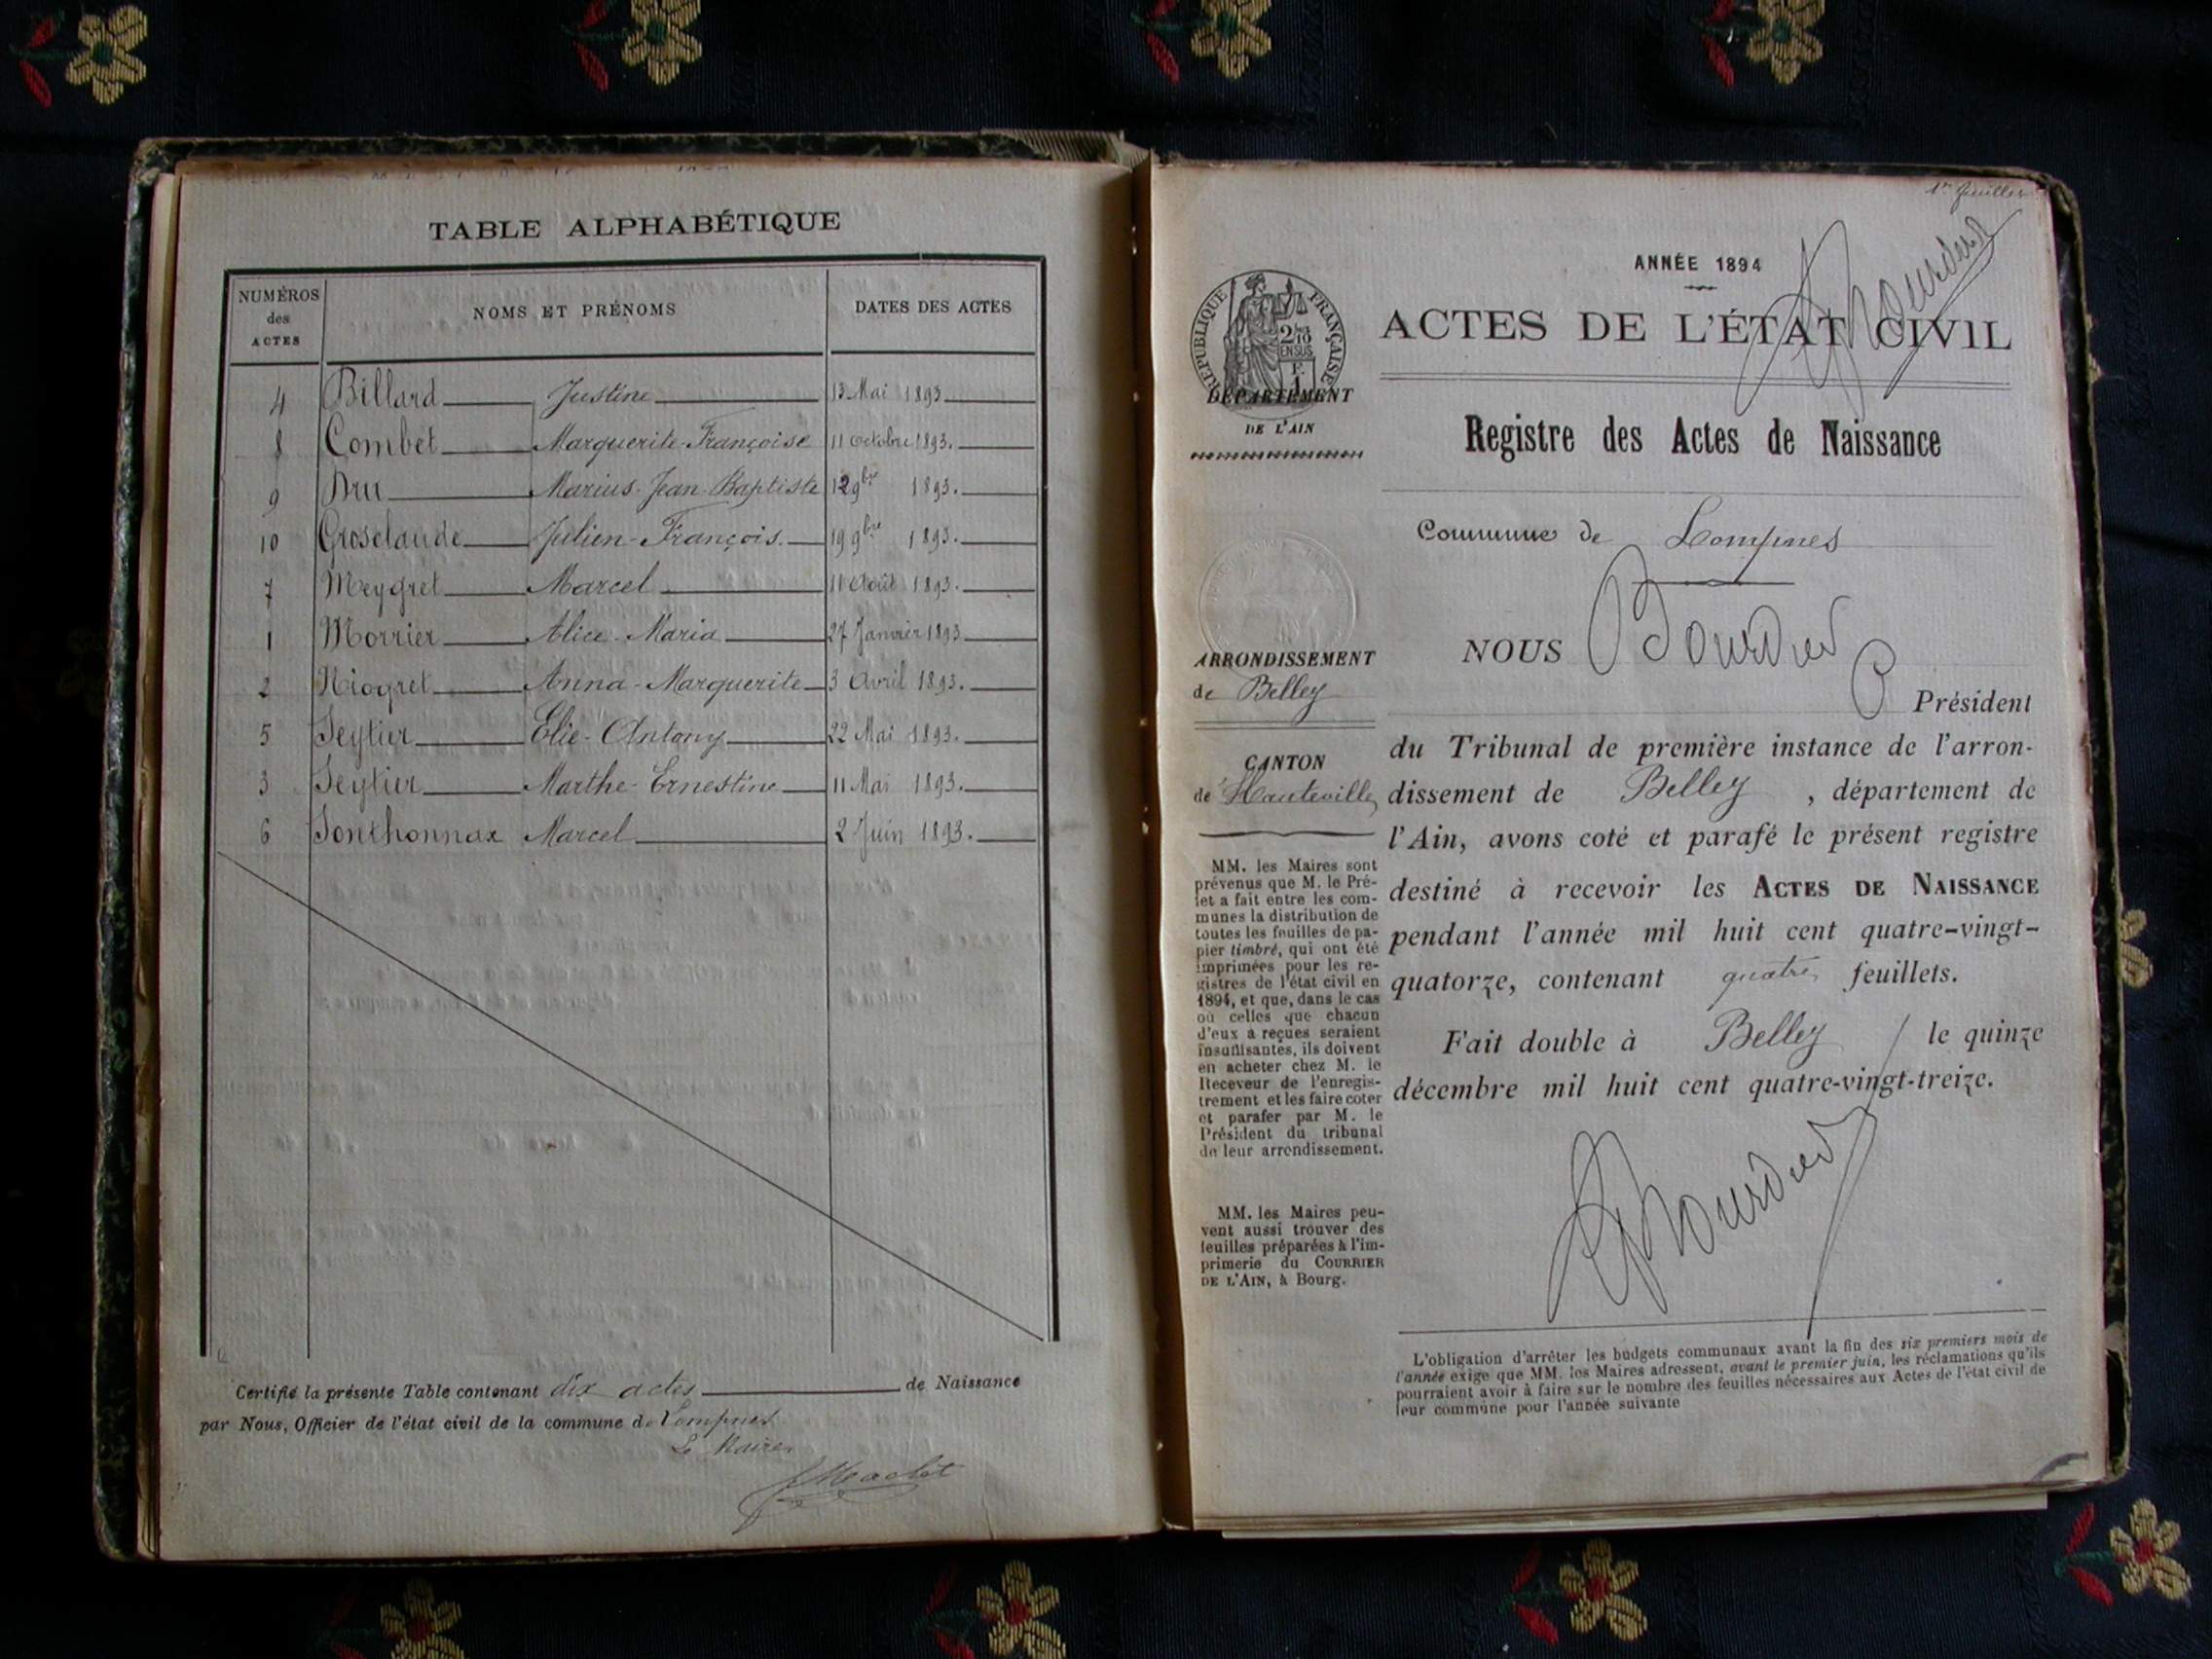 TABLE ALPHABÉTIQUE
NUMÉROS des ACTES NOMS ET PRÉNOMS DATES DES ACTES
4 Billard Justine 13 Mai 1893
8 Combet Marguerite-Françoise 11 Octobre 1893.
9 Dru Marius-Jean-Baptiste 12 9bre 1893.
10 Groselaude Julien-François. 19 9bre 1893.
7 Meygret Marcel 11 Août 1893.
1 Morrier Alice-Maria 27 Janvier 1893
2 Niogret Anna-Marguerite 3 Avril 1893.
5 Seytier Elie-Antony 22 Mai 1893.
3 Seytier Marthe-Ernestine 11 Mai 1893.
6 Sonthonnax Marcel 2 Juin 1893.
Certifié la présente Table contenant dix actes de Naissance
par Nous, Officier de l'état civil de la commune de Lompnes
Le Maire
1er feuillet
ANNÉE 1894
ACTES DE L'ÉTAT CIVIL
RÉPUBLIQUE FRANÇAISE
2/10
EN SUS
F.
1
DÉPARTEMENT
DE L'AIN
Registre des Actes de Naissance
Commune de Lompnes
ARRONDISSEMENT
de Belley
CANTON
de Hauteville
MM. les Maires sont
prévenus que M. le Pré-
fet a fait entre les com-
munes la distribution de
toutes les feuilles de pa-
pier timbré, qui ont été
imprimées pour les re-
gistres de l'état civil en
1894, et que, dans le cas
où celles que chacun
d'eux a reçues seraient
insuffisantes, ils doivent
en acheter chez M. le
Receveur de l'enregis-
trement et les faire coter
et parafer par M. le
Président du tribunal
de leur arrondissement.
MM. les Maires peu-
vent aussi trouver des
feuilles préparées à l'im-
primerie du COURRIER
DE L'AIN, à Bourg.
NOUS Bourdier
Président
du Tribunal de première instance de l'arron-
dissement de Belley , département de
l'Ain, avons coté et parafé le présent registre
destiné à recevoir les ACTES DE NAISSANCE
pendant l'année mil huit cent quatre-vingt-
quatorze, contenant quatre feuillets.
Fait double à Belley le quinze
décembre mil huit cent quatre-vingt-treize.
L'obligation d'arrêter les budgets communaux avant la fin des six premiers mois de
l'année exige que MM. les Maires adressent, avant le premier juin, les réclamations qu'ils
pourraient avoir à faire sur le nombre des feuilles nécessaires aux Actes de l'état civil de
leur commune pour l'année suivante